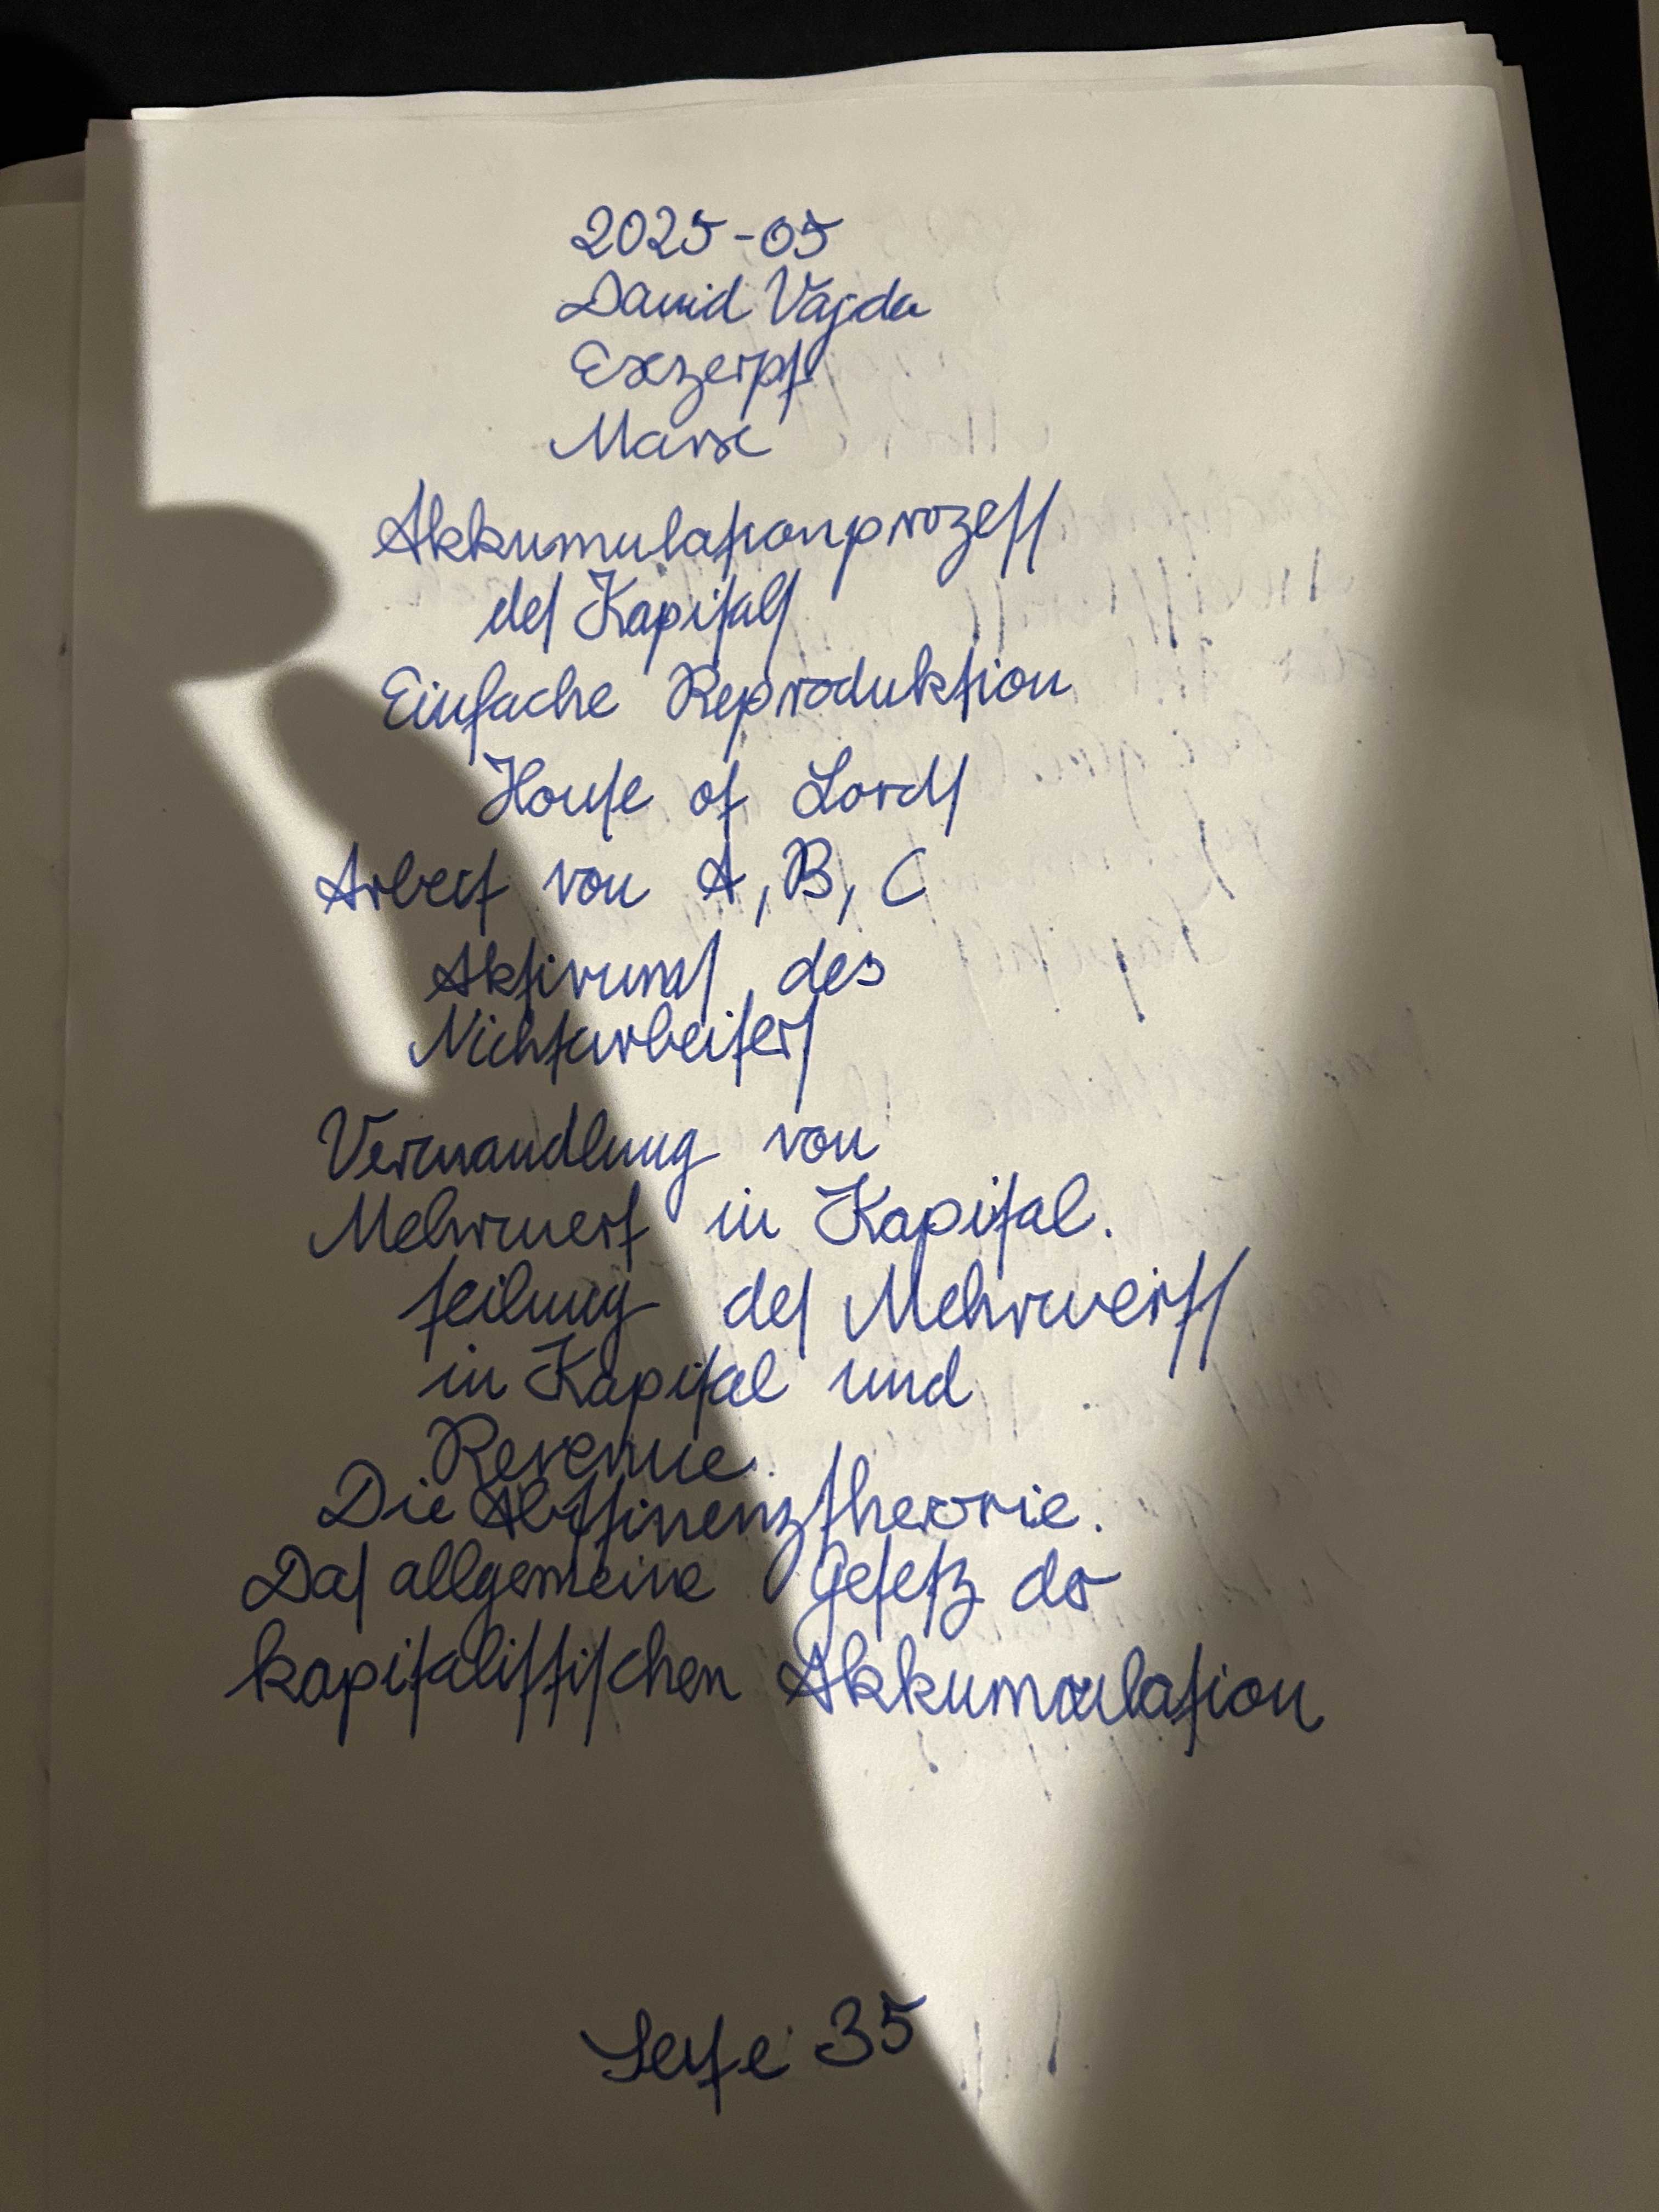 2025-05
David Vajda
Exzerpt
Marx
Akkumulationprozess
des Kapitals
Einfache Reproduktion
House of Lords
Arbeit von A, B, C
des
Nichtarbeiters
Verwandlung von
Mehrwert in Kapital.
teilung des Mehrwerts
in Kapital und
Revenue.
Die Abstinenztheorie.
Das allgemeine Gesetz der
kapitalistischen Akkumulation
Seite 35